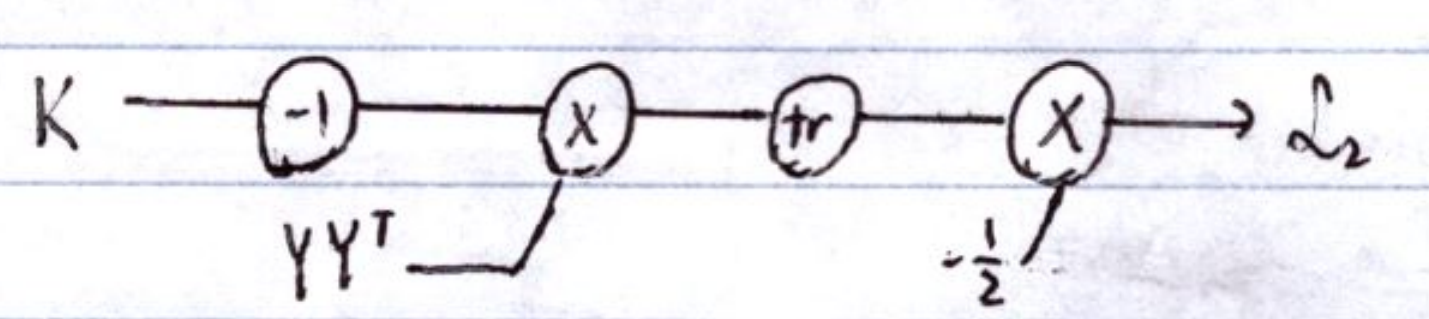 K -1 X tr X ℒ₂
YYᵀ -1/2